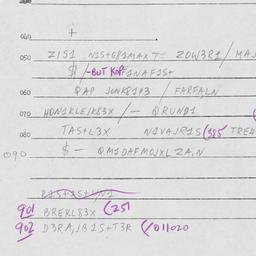 040 +
050 ZISI N1S+OP1MAXT ZOW3R1/MAJ
$/-BUT KOP1NAF1S+
060 QAP JUNK81P3 / FARFALN
070 HON1KLEJK83X /- QRUND1
080 TAS+L3X N1VAJR1S (385 TREW
090 $- QM1DAFMOJXLZA,N
B1S+1S+U/V1
901 BREKL83X (251
902 D3RA,JB1S+T3R (/011020